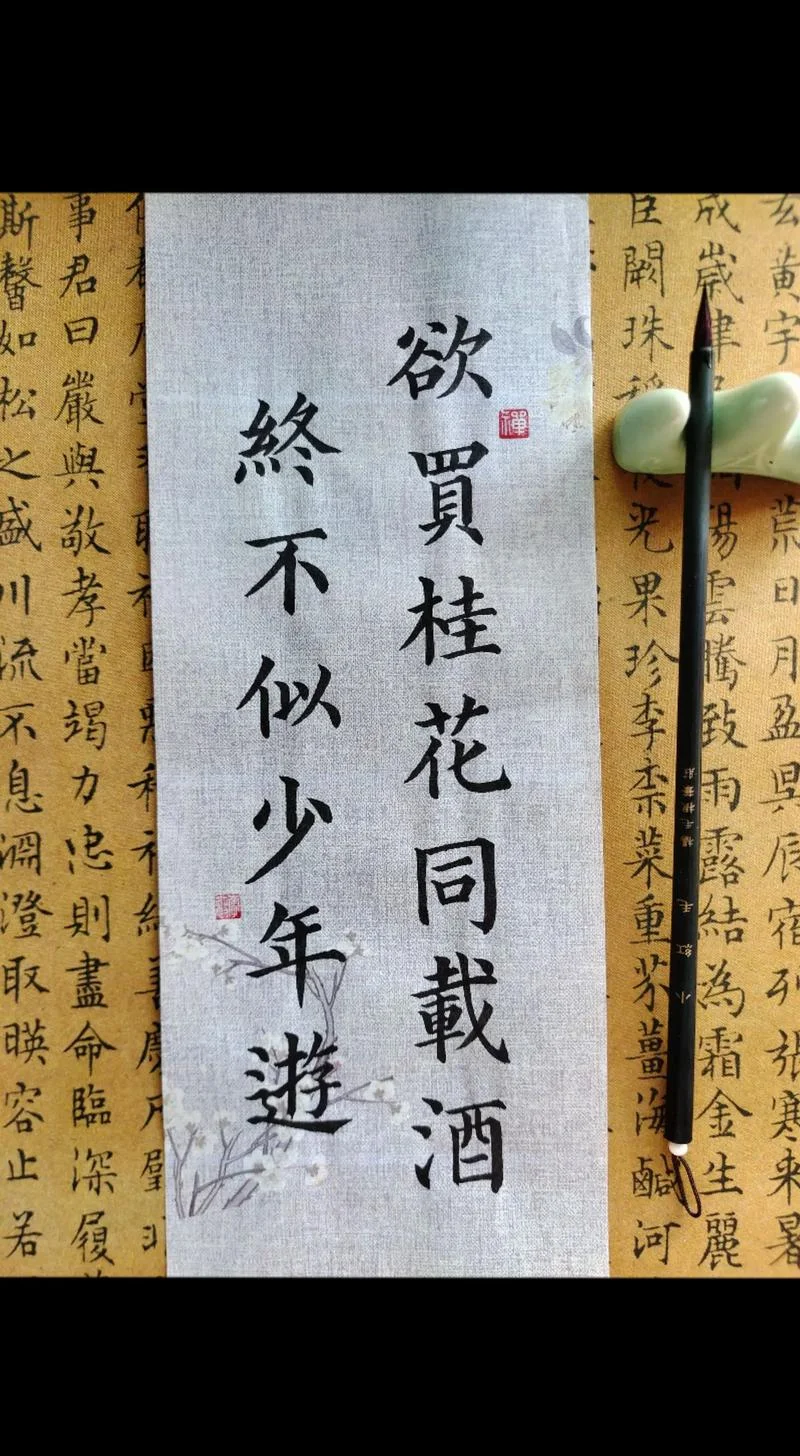 玄黃宇荒日月盈昃辰宿列張寒来暑
成歲律陽雲騰致雨露結為霜金生麗
巨闕珠稱夜光果珍李柰菜重芥薑海鹹河
小紅毛
欲買桂花同載酒
禪
終不似少年遊
事君曰嚴與敬孝當竭力忠則盡命臨深履
斯馨如松之盛川流不息淵澄取暎容止若